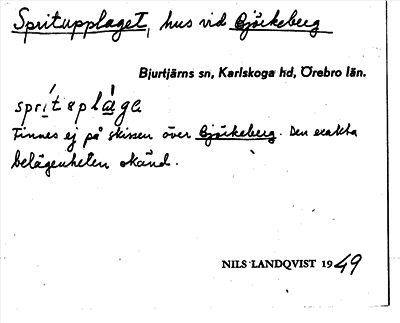 Spritupplaget, hus vid Björkeberg
Bjurtjärns sn, Karlskoga hd, Örebro län.
sprítəplàga
Finnes ej på skissen över Björkeberg. Den exakta
belägenheten okänd.
NILS LANDQVIST 1949